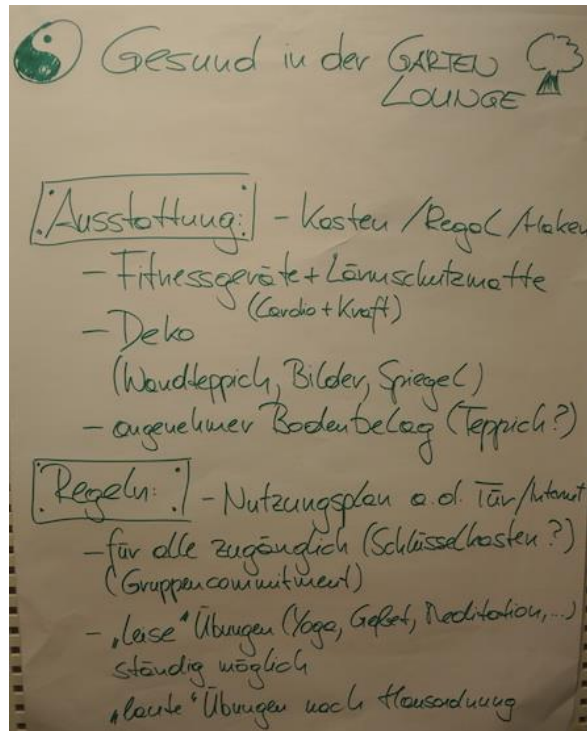 Gesund in der GARTEN
LOUNGE
Ausstattung: - Kasten / Regal / Haken
- Fitnessgeräte + Lärmschutzmatte
(Cardio + Kraft)
- Deko
(Wandteppich, Bilder, Spiegel)
- angenehmer Bodenbelag (Teppich?)
Regeln: - Nutzungsplan a.d. Tür/Internet
- für alle zugänglich (Schlüsselkasten?)
(Gruppencommitment)
- „leise“ Übungen (Yoga, Gebet, Meditation, ...)
ständig möglich
„laute“ Übungen nach Hausordnung